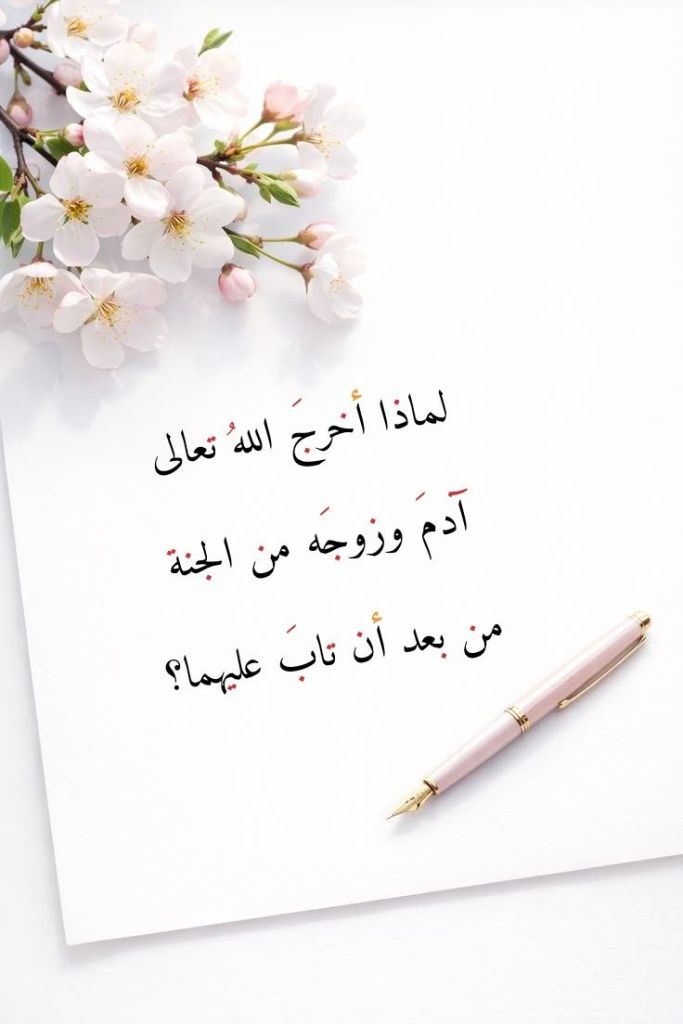 لماذا أخرجَ اللهُ تعالى
آدمَ وزوجَه من الجنة
من بعد أن تابَ عليهما؟